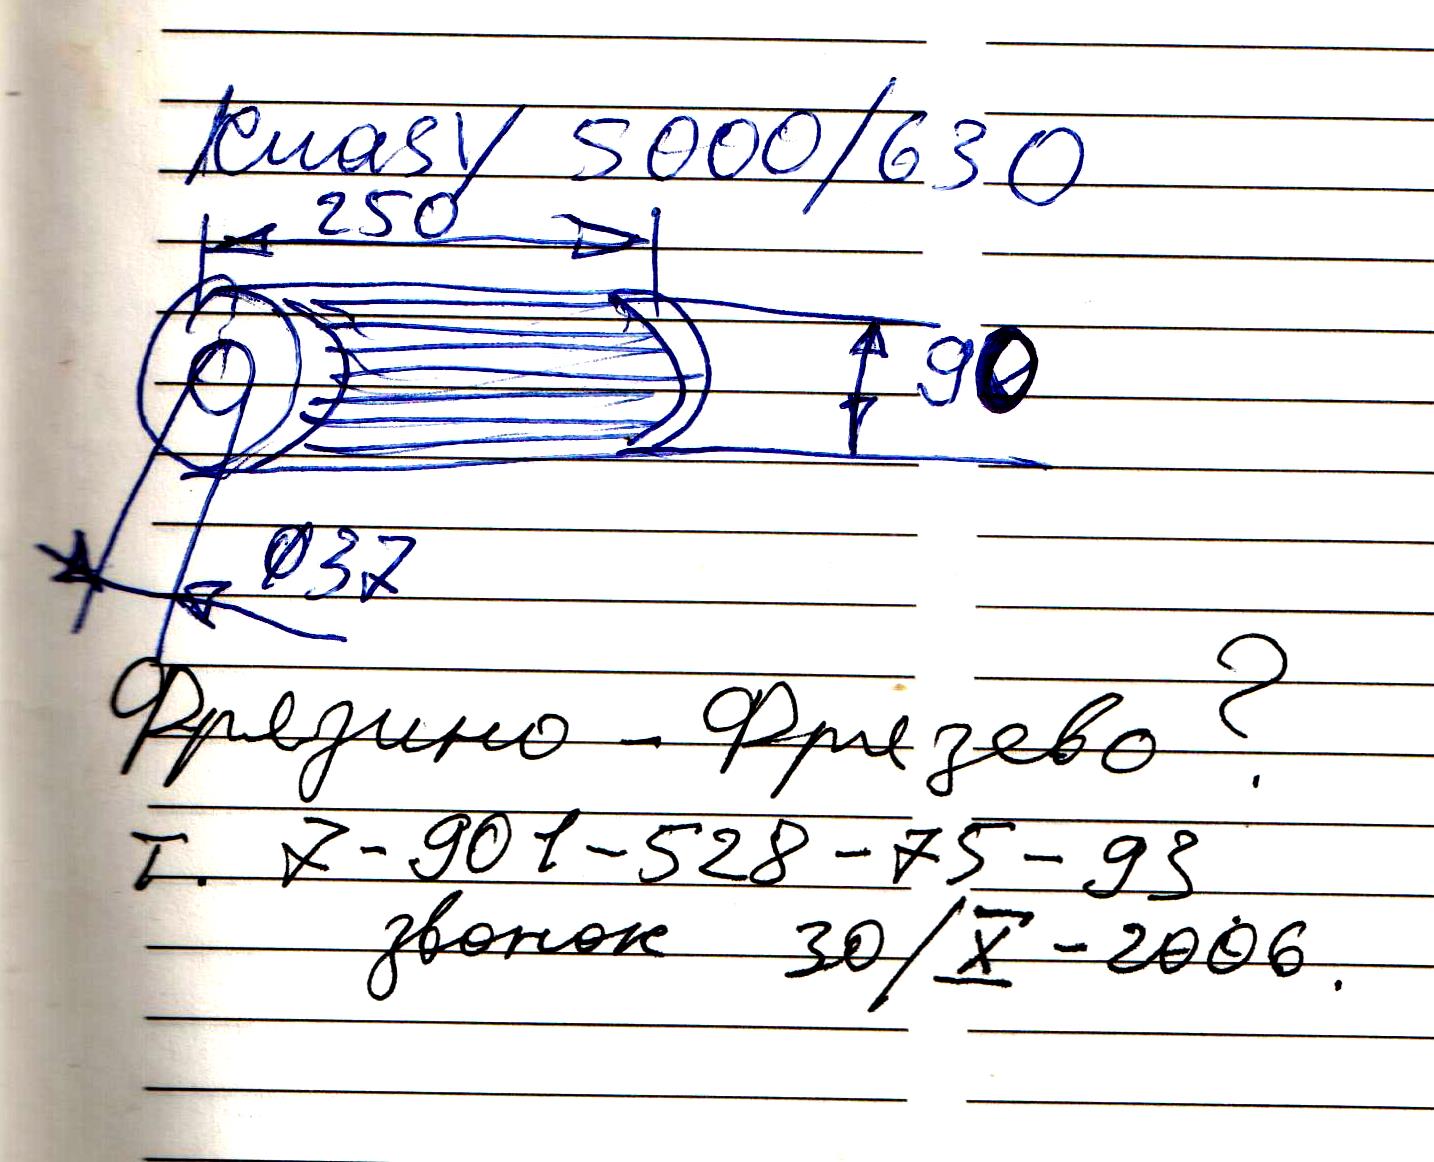 KuasY 5000/630
250
90
Ø37
Фрязино - Фрязево?
т. 7-901-528-75-93
звонок 30/X-2006.